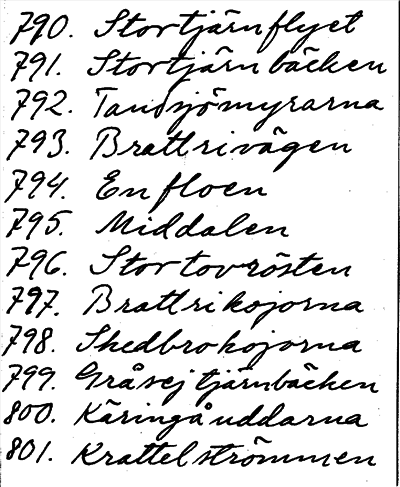 790. Stortjärnflyet
791. Stortjärnbäcken
792. Tandsjömyrarna
793. Brattrivägen
794. Enfloen
795. Middalen
796. Stortovrösten
797. Brattrikojorna
798. Skedbrokojorna
799. Gråvejtjärnbäcken
800. Käringåuddarna
801. Krattelströmmen